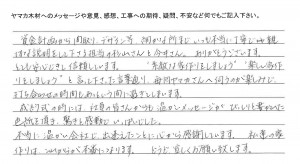 ヤマカ木材へのメッセージや意見、感想、工事への期待、疑問、不安など何でもご記入下さい。
資金計画から間取り、デザイン等、細かい所までいつも丁寧に
説明をして下さる担当の杉山さんと今井さん、ありがとうございます。
とても安心して依頼しています。"気軽な家作りをしましょう" "楽しい家作り
をしましょう"と言って下さった言葉通り、毎回ヤマカさんへ伺うのが楽しみに
打ち合わせの時間もあっという間に過ぎてしまいます。
成約式の時には、社員の皆さんからも温かいメッセージがびっしりと書かれた
色紙を頂き、驚きと感動でいっぱいでした。
本当に温かい会社に出逢えたことに心から感謝しています。私達の家
作りは、これからが本番になります。どうぞ宜しくお願い致します。